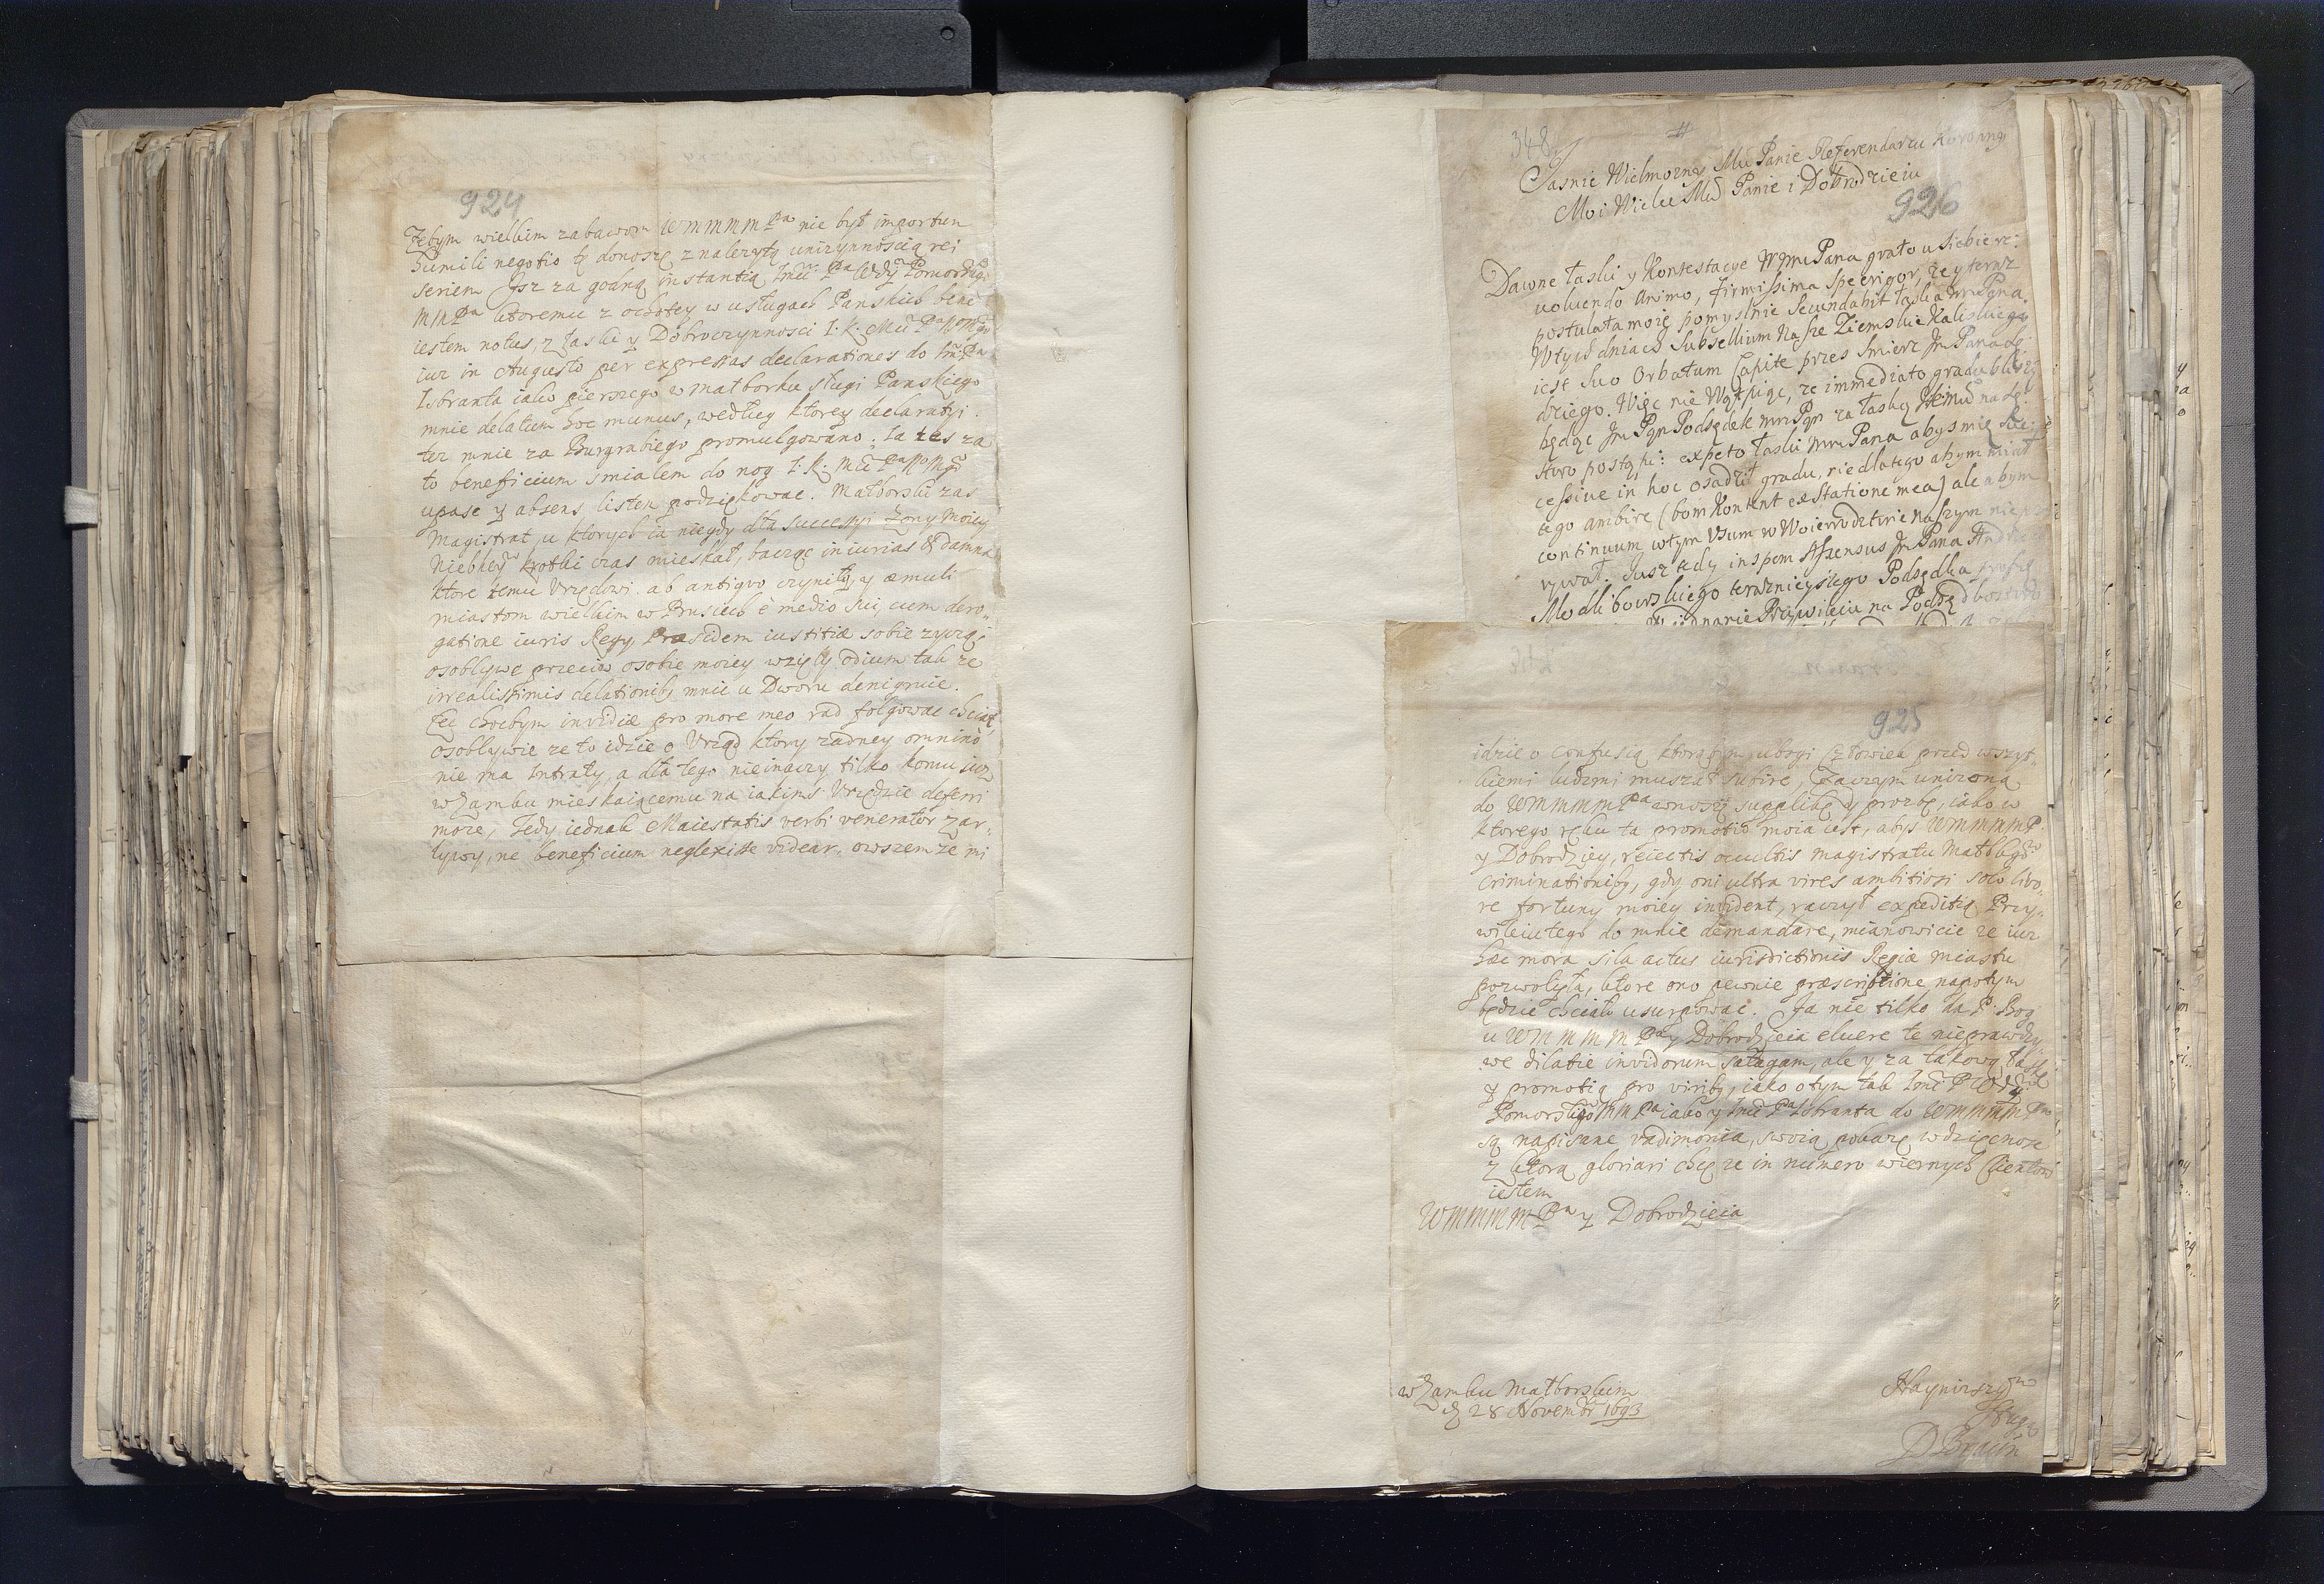 924
Żebym wielkim zabawom WMMMMPa nie był importun
humili negotio tę donoszę z należytą uniżonnoscią rei
seriem Isz za godną instantią Imci Pa Wdy Pomorskgo
MMPa ktoremu z ochotey w usługach Panskich bene
iestem notus, z Łaski y Dobroczynnosci I. K. Mci PaNoMgo
iuz in Augusto per expressas declarationes do ImPa
Isbranta iako pierszego w Malborku sługi Panskiego
mnie delatum hoc munus, wedłuy ktorey declaratyi.
tez mnie za Burgrabiego promulgowano. Ia zas za
to beneficium smialem do nog I. K. Mci PaNoMgo
upasc y absens listen podziękowac. Malborski zas
Magistrat, u ktorych ia nigdy dla successyi Żony moiey
Niebkey krotki czas mieskał, bacząc iniurias & damna
ktore temu Vrzędowi ab antiquo czynilÿ, y æmuli
miastom wielkim w Prusiech è medio sui, cum dero-
gatione iuris Regy, Præsidem iustitiæ sobie zyczą;
osoblywe przeciw osobie moiey wzięlÿ odium tak ze
irrealissimis delationibꝫ mnie u Dworu denigruie.
Lec chocbym invidiæ pro more meo rad folgowac chciał,
osoblywie ze to idzie o Vrząd ktory zadney omninò
nie ma Intraty, a dla tego nieinaczy tilko komu iusz
w Zamku mieskaiącemu na iakims Vrzędzie deferri
moze, Tedy iednak Maiestatis verbi venerator zar-
lywy, ne beneficium neglexisse videar. owszem ze mi
348
#
Jasnie Wielmozny Mci Panie Referendarzu Koronny
Moi Wielce Mci Panie i Dobrodzieiu
926
Dawne łaski y Kontestacye WMPana grato u siebie re:
uoluendo Animo, firmissima spe erigor, ze y teraz
postulata moię pomyslnie Secundabit łaska WMPana.
W tych dniach Subsellium Nasze Ziemskie Kaliskiego
iest Suo Orbatum Capite przes Smierc Jm Pana Sę:
dziego. Więc nie Wątpiąc, ze immediato gradu bliszy
będąc Jm Pan Podsędek WM Pan za łaską
Kwo postąpi: expeto łaski WM Pana abys mię Suc:
cessive in hoc osadził gradu, nie dlatego abym miał
tego ambire (bom Kontent ex Statione mea) ale abym
continuum w tym Vsum w Woiewodztwie Naszym nie prze
rywał. Jusz tedy in spem Assensus Jm Pana
Modlibowskiego teraznieyszego Podsędka
Przywileiu na
925
idzie o confusią ktorąbym ubogi Człowiek przed wszyt-
kiemi ludzmi muszał subire, Zaczym unizoną
do WMMMMPa wnoszę supplikę y prozbę, iako w
ktorego ręku ta promotio moia iest, abys WMMMMP.
y Dobrodziey, reiectis ocultis magistratu Malbkgo
criminationibꝫ, gdy oni ultra vires ambitiosi solo livo-
re fortuny moiey invident, raczył expeditią Przy-
wileiu tego do mnie demandare, mianowicie ze iuz
hæc mora sila actus iurisdictionis Regiæ miastu
pozwolyła, ktore ono pewnie præscriptione napotym
będzie chciało usurpowac. Ja nie tilko da P. Bog
u WMMMMPa y Dobrodzieia eluere te nieprawdzy-
we dilatie invidorum satagam, ale y za takową łaskę
y promotią pro viribꝫ, iako o tym tak Imci P Wdy
Pomorskgo MMPa iako y Imci Pa Isbranta do WMMMMPa
są napisane vadimonia, swoią pokazę wdzięcznosc
z ktorą gloriari chcę ze in numero wiernych Clientow
iestem
WMMMMPa y Dobrodzieia
w Zamku Malborskim
d 28 Novembr 1693
Nayniszszym
Sługą
D Braun